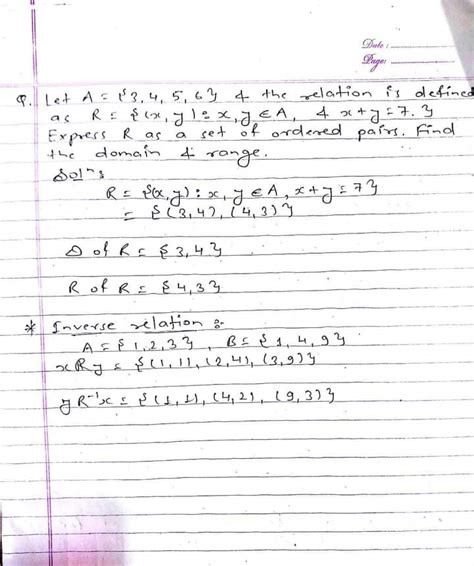 Date :
Page:
Q. Let A = {3, 4, 5, 6} & the relation is defined
as R = {(x, y) : x, y ∈ A, & x + y = 7. }
Express R as a set of ordered pairs. Find
the domain & range.
Solⁿ:
R = {(x, y) : x, y ∈ A, x + y = 7}
= {(3,4), (4,3)}
D of R = {3,4}
R of R = {4,3}
* Inverse relation :-
A = {1, 2, 3}, B = {1, 4, 9}
xRy = {(1,1), (2,4), (3,9)}
yR⁻¹x = {(1,1), (4,2), (9,3)}